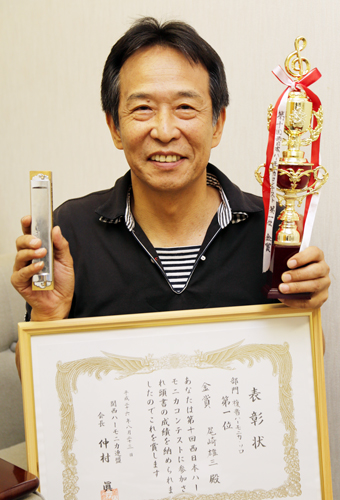 表彰状
部門 複音ハーモニカソロ
第一位
金賞 尾崎雄三 殿
あなたは第十回西日本ハー
モニカコンテストに参加さ
れ頭書の成績を納められま
したのでこれを賞します
関西ハーモニカ連盟
会長 仲村 眞